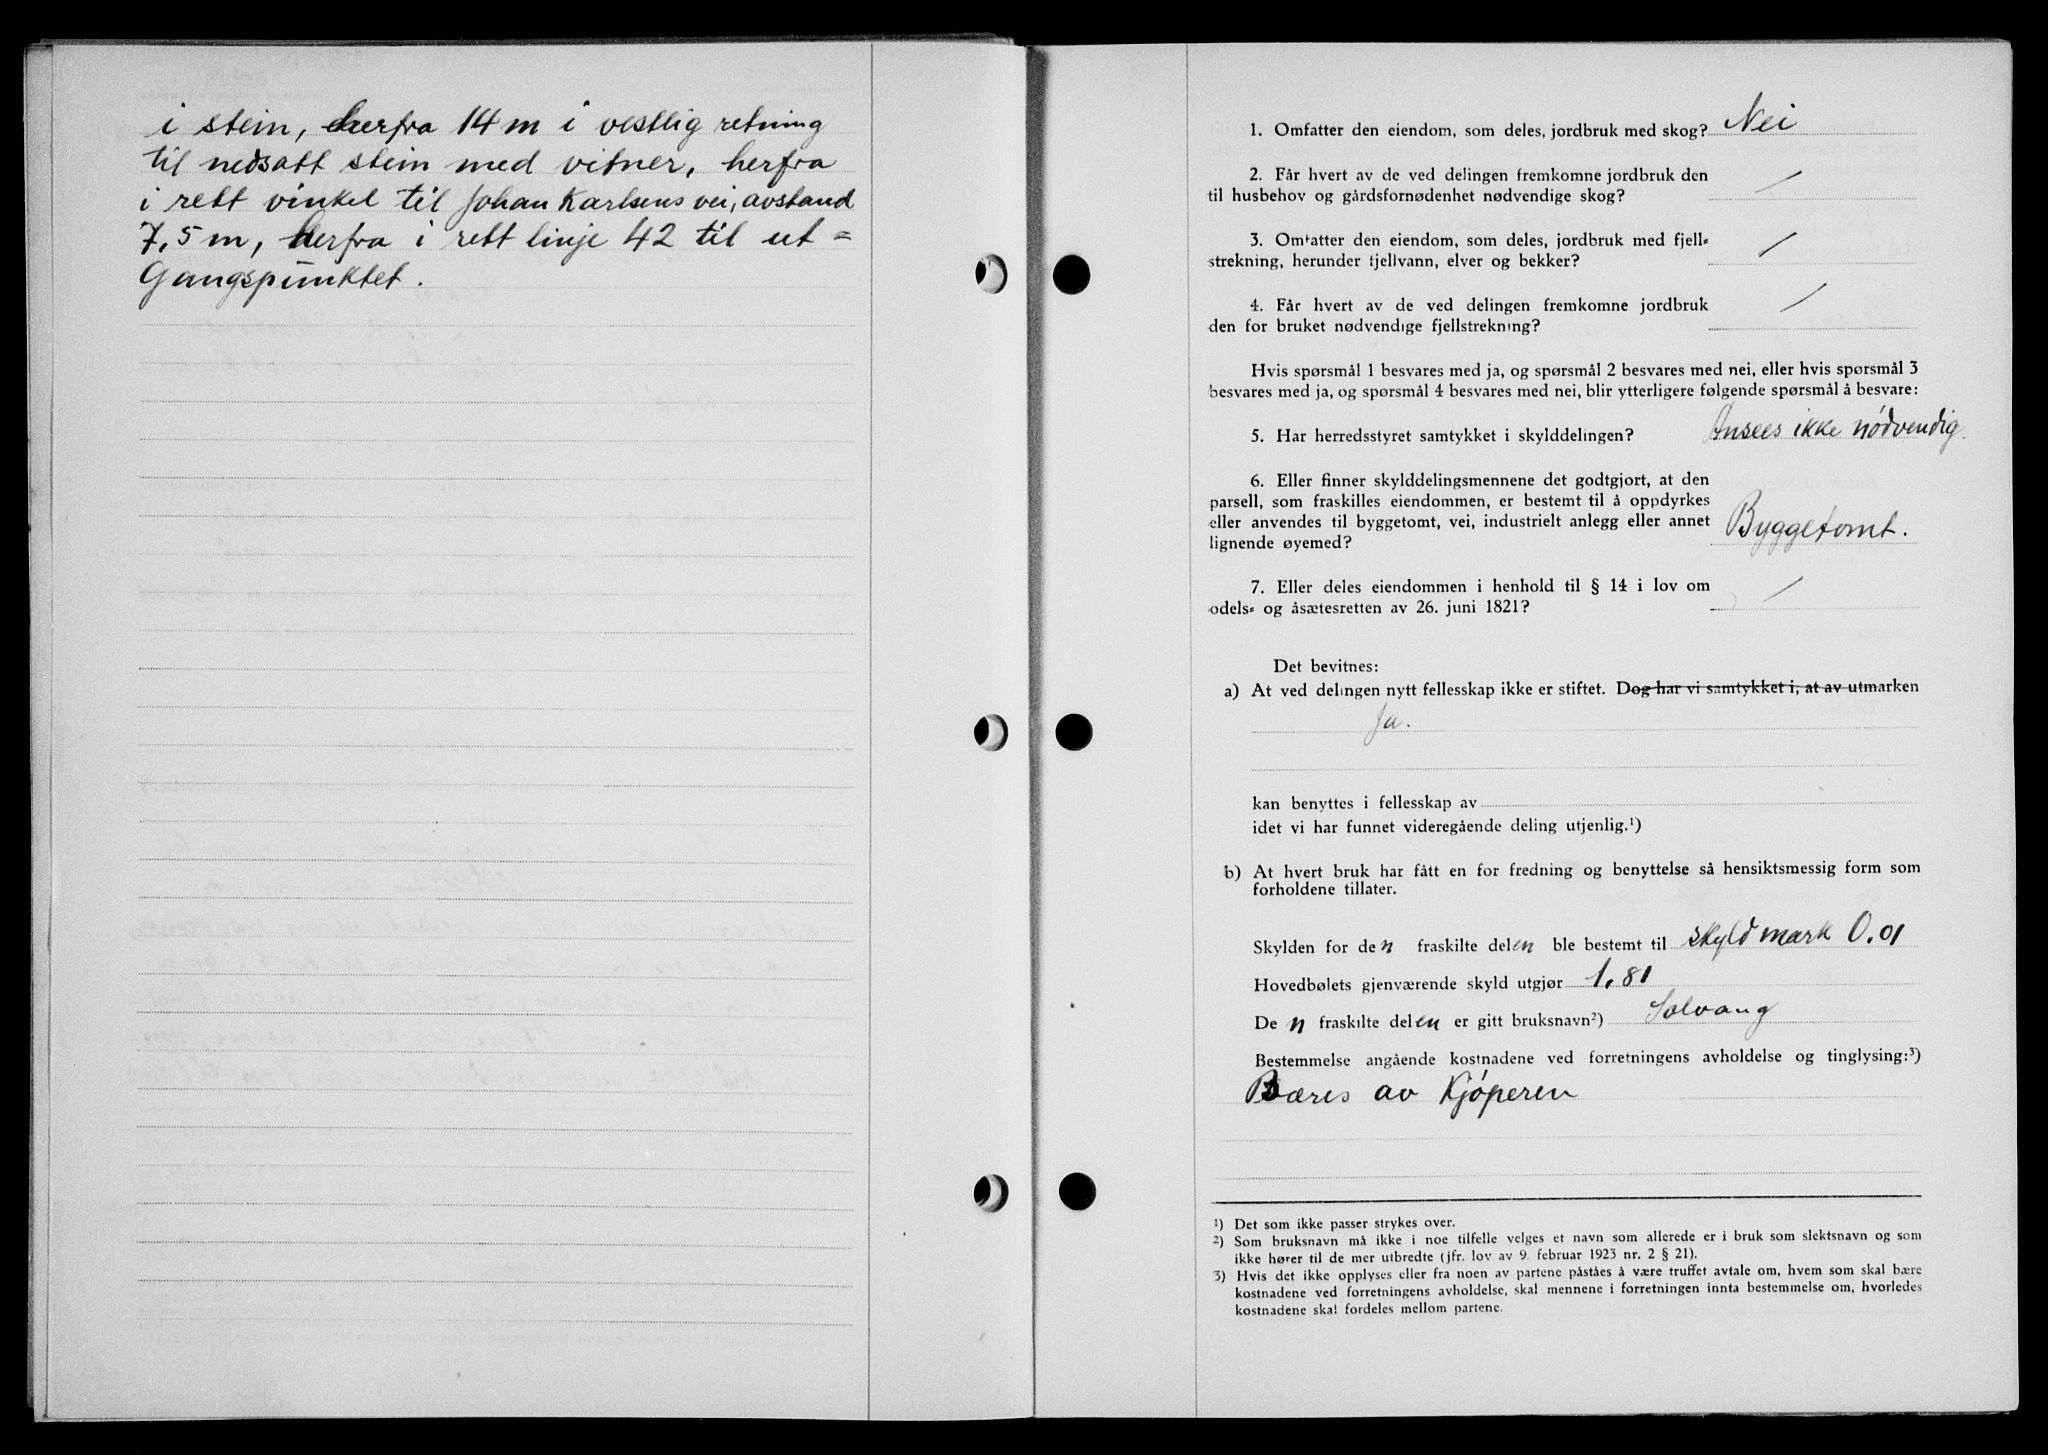 i stein, herfra 14 m i vestlig retning
til nedsatt stein med vitner, herfra
i rett vinkel til Johan Karlsens vei, avstand
7,5 m, herfra i rett linje 42 til ut=
Gangspunktet.
1. Omfatter den eiendom, som deles, jordbruk med skog? Nei
2. Får hvert av de ved delingen fremkomne jordbruk den
til husbehov og gårdsfornødenhet nødvendige skog? /
3. Omfatter den eiendom, som deles, jordbruk med fjell=
strekning, herunder fjellvann, elver og bekker? /
4. Får hvert av de ved delingen fremkomne jordbruk
den for bruket nødvendige fjellstrekning? /
Hvis spørsmål 1 besvares med ja, og spørsmål 2 besvares med nei, eller hvis spørsmål 3
besvares med ja, og spørsmål 4 besvares med nei, blir ytterligere følgende spørsmål å besvare:
5. Har herredsstyret samtykket i skylddelingen? Ansees ikke nødvendig.
6. Eller finner skylddelingsmennene det godtgjort, at den
parsell, som fraskilles eiendommen, er bestemt til å oppdyrkes
eller anvendes til byggetomt, vei, industrielt anlegg eller annet
lignende øyemed? Byggetomt.
7. Eller deles eiendommen i henhold til § 14 i lov om
odels= og åsætesretten av 26. juni 1821? /
Det bevitnes:
a) At ved delingen nytt fellesskap ikke er stiftet. Dog har vi samtykket i, at av utmarken
Ja.
kan benyttes i fellesskap av
idet vi har funnet videregående deling utjenlig.¹)
b) At hvert bruk har fått en for fredning og benyttelse så hensiktsmessig form som
forholdene tillater.
Skylden for den fraskilte delen ble bestemt til skyldmark 0.01
Hovedbølets gjenværende skyld utgjør 1,81
Den fraskilte delen er gitt bruksnavn²) Solvang
Bestemmelse angående kostnadene ved forretningens avholdelse og tinglysing:³)
Bæres av Kjøperen
¹) Det som ikke passer strykes over.
²) Som bruksnavn må ikke i noe tilfelle velges et navn som allerede er i bruk som slektsnavn og som
ikke hører til de mer utbredte (jfr. lov av 9. februar 1923 nr. 2 § 21).
³) Hvis det ikke opplyses eller fra noen av partene påståes å være truffet avtale om, hvem som skal bære
kostnadene ved forretningens avholdelse, skal mennene i forretningen innta bestemmelse om, hvorledes
kostnadene skal fordeles mellom partene.